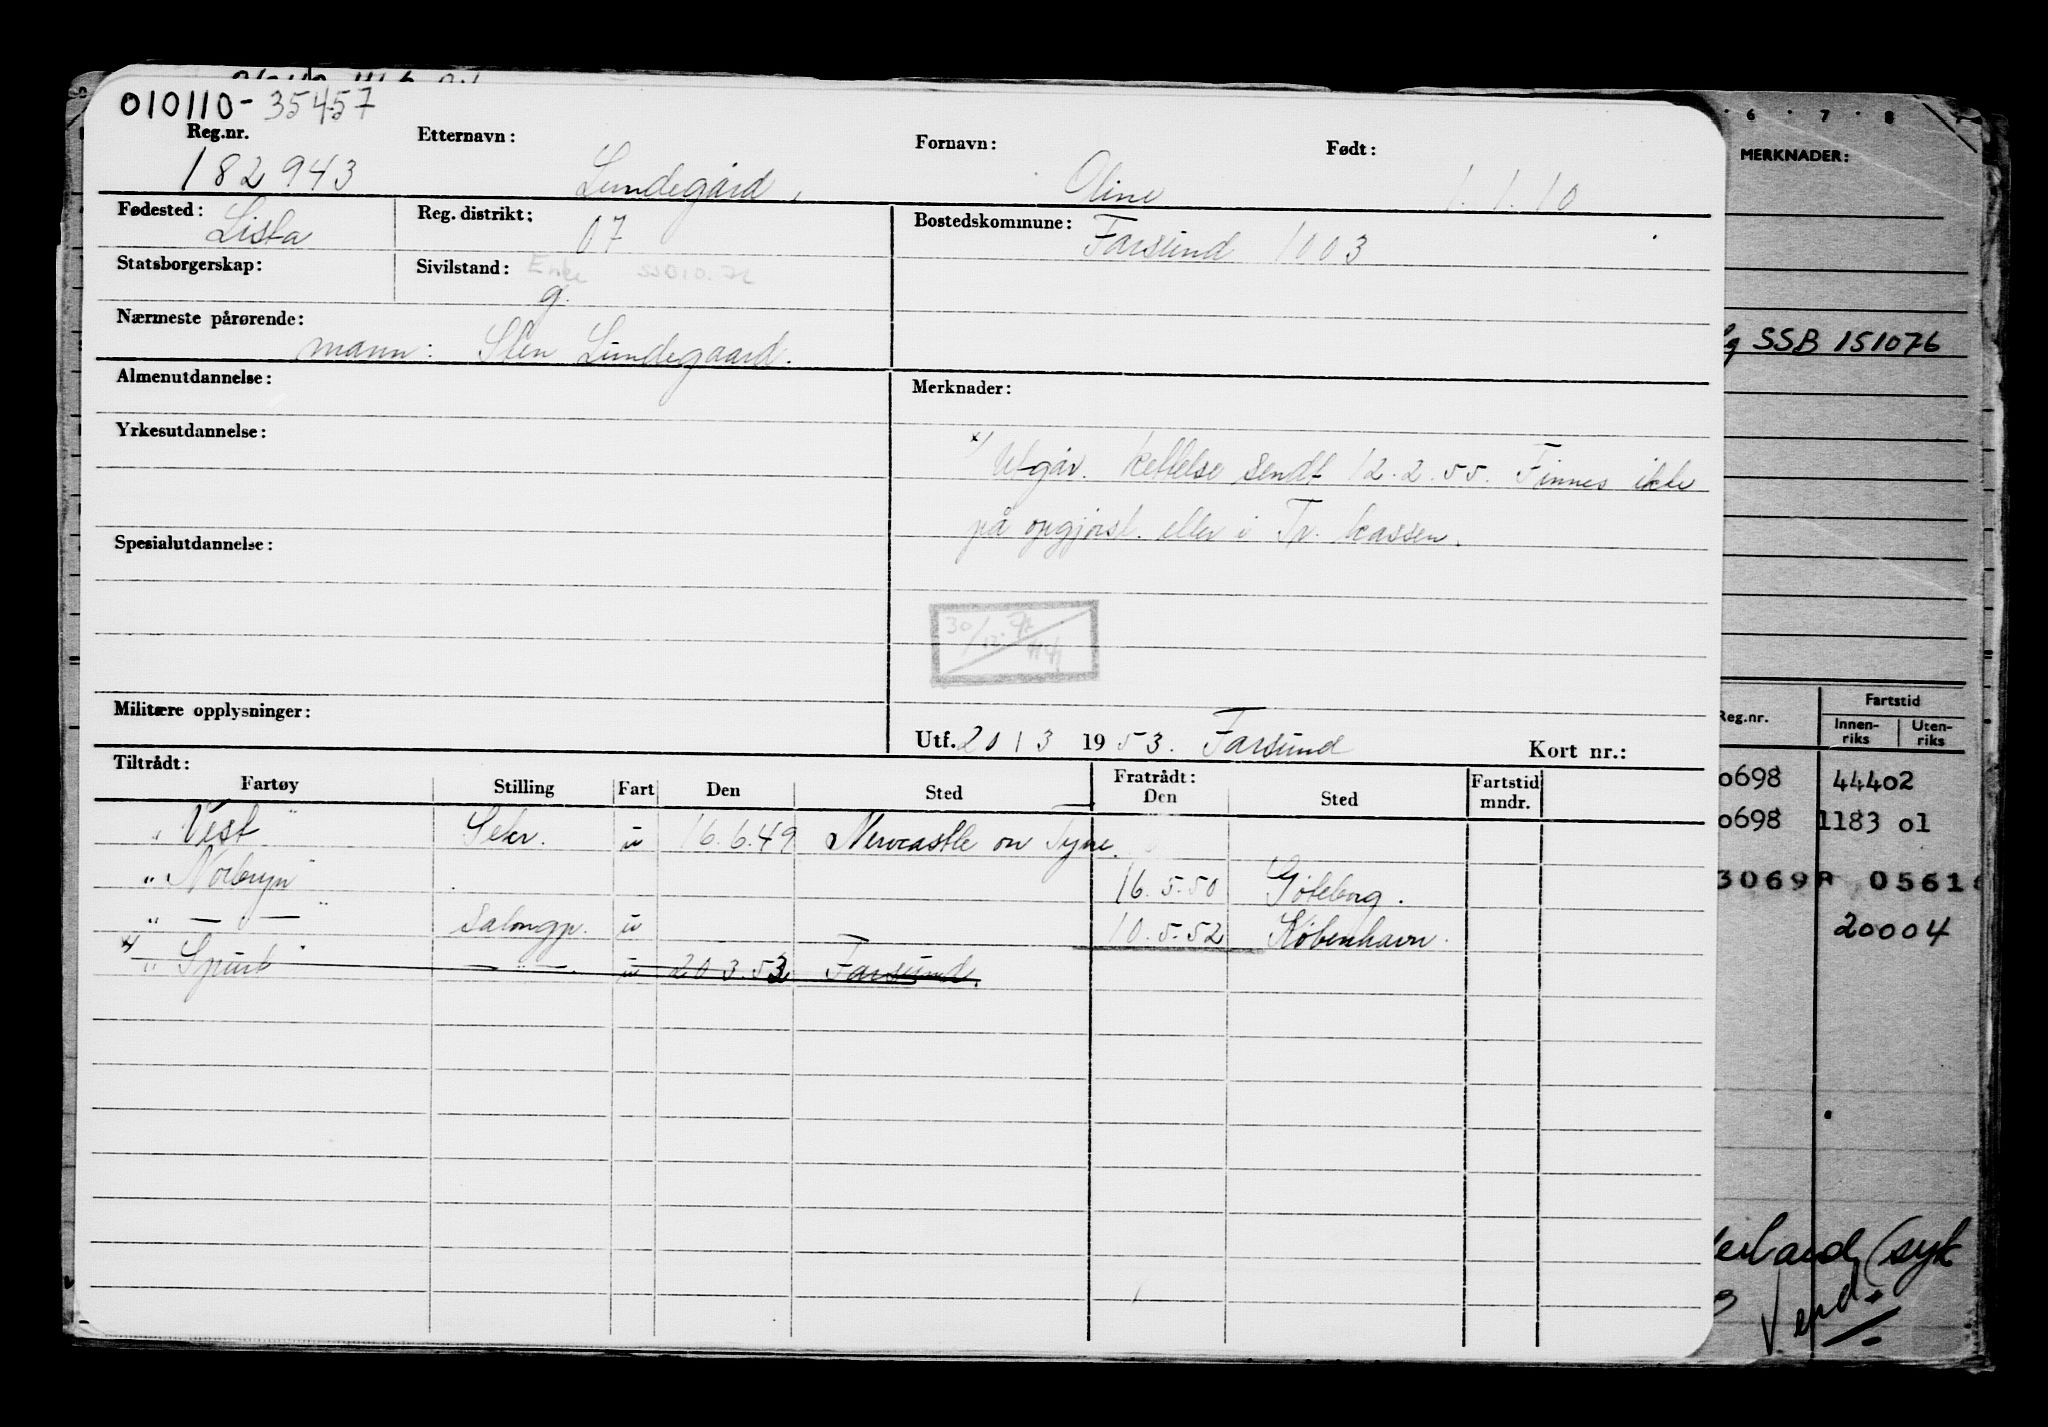 010110-35457
Reg.nr. Etternavn: Fornavn: Født:
182943 Lundegård, Oline 1.1.10
Fødested: Lista Reg. distrikt: 07 Bostedskommune: Farsund 1003
Statsborgerskap: Sivilstand: Enke g.
Nærmeste pårørende:
mann: Sten Lundegaard.
Almenutdannelse: Merknader:
Yrkesutdannelse:
x/ Utgår. Rettelse sendt 12.2.55. Finnes ikke
på oppgjørsl. eller i Tr. kassen.
Spesialutdannelse:
30/12
Militære opplysninger:
Utf. 20 13 1953. Farsund Kort nr.:
Tiltrådt: Fratrådt:
Fartøy Stilling Fart Den Sted Den Sted Fartstid mndr.
" Vest " Sekr. u 16.6.49 Newcastle on Tyne.
" Norbryn " 16.5.50 Gøteborg.
" — " — " Salongp. u 10.5.52 København.
x/ " Spurt " — " — . u 20 3.53 Farsund.
6 7 8
MERKNADER:
SSB 151076
Reg.nr. Fartstid
Innen-riks Uten-riks
0698 44402
0698 1183 01
30698 0561
20004
(syk
Vend.